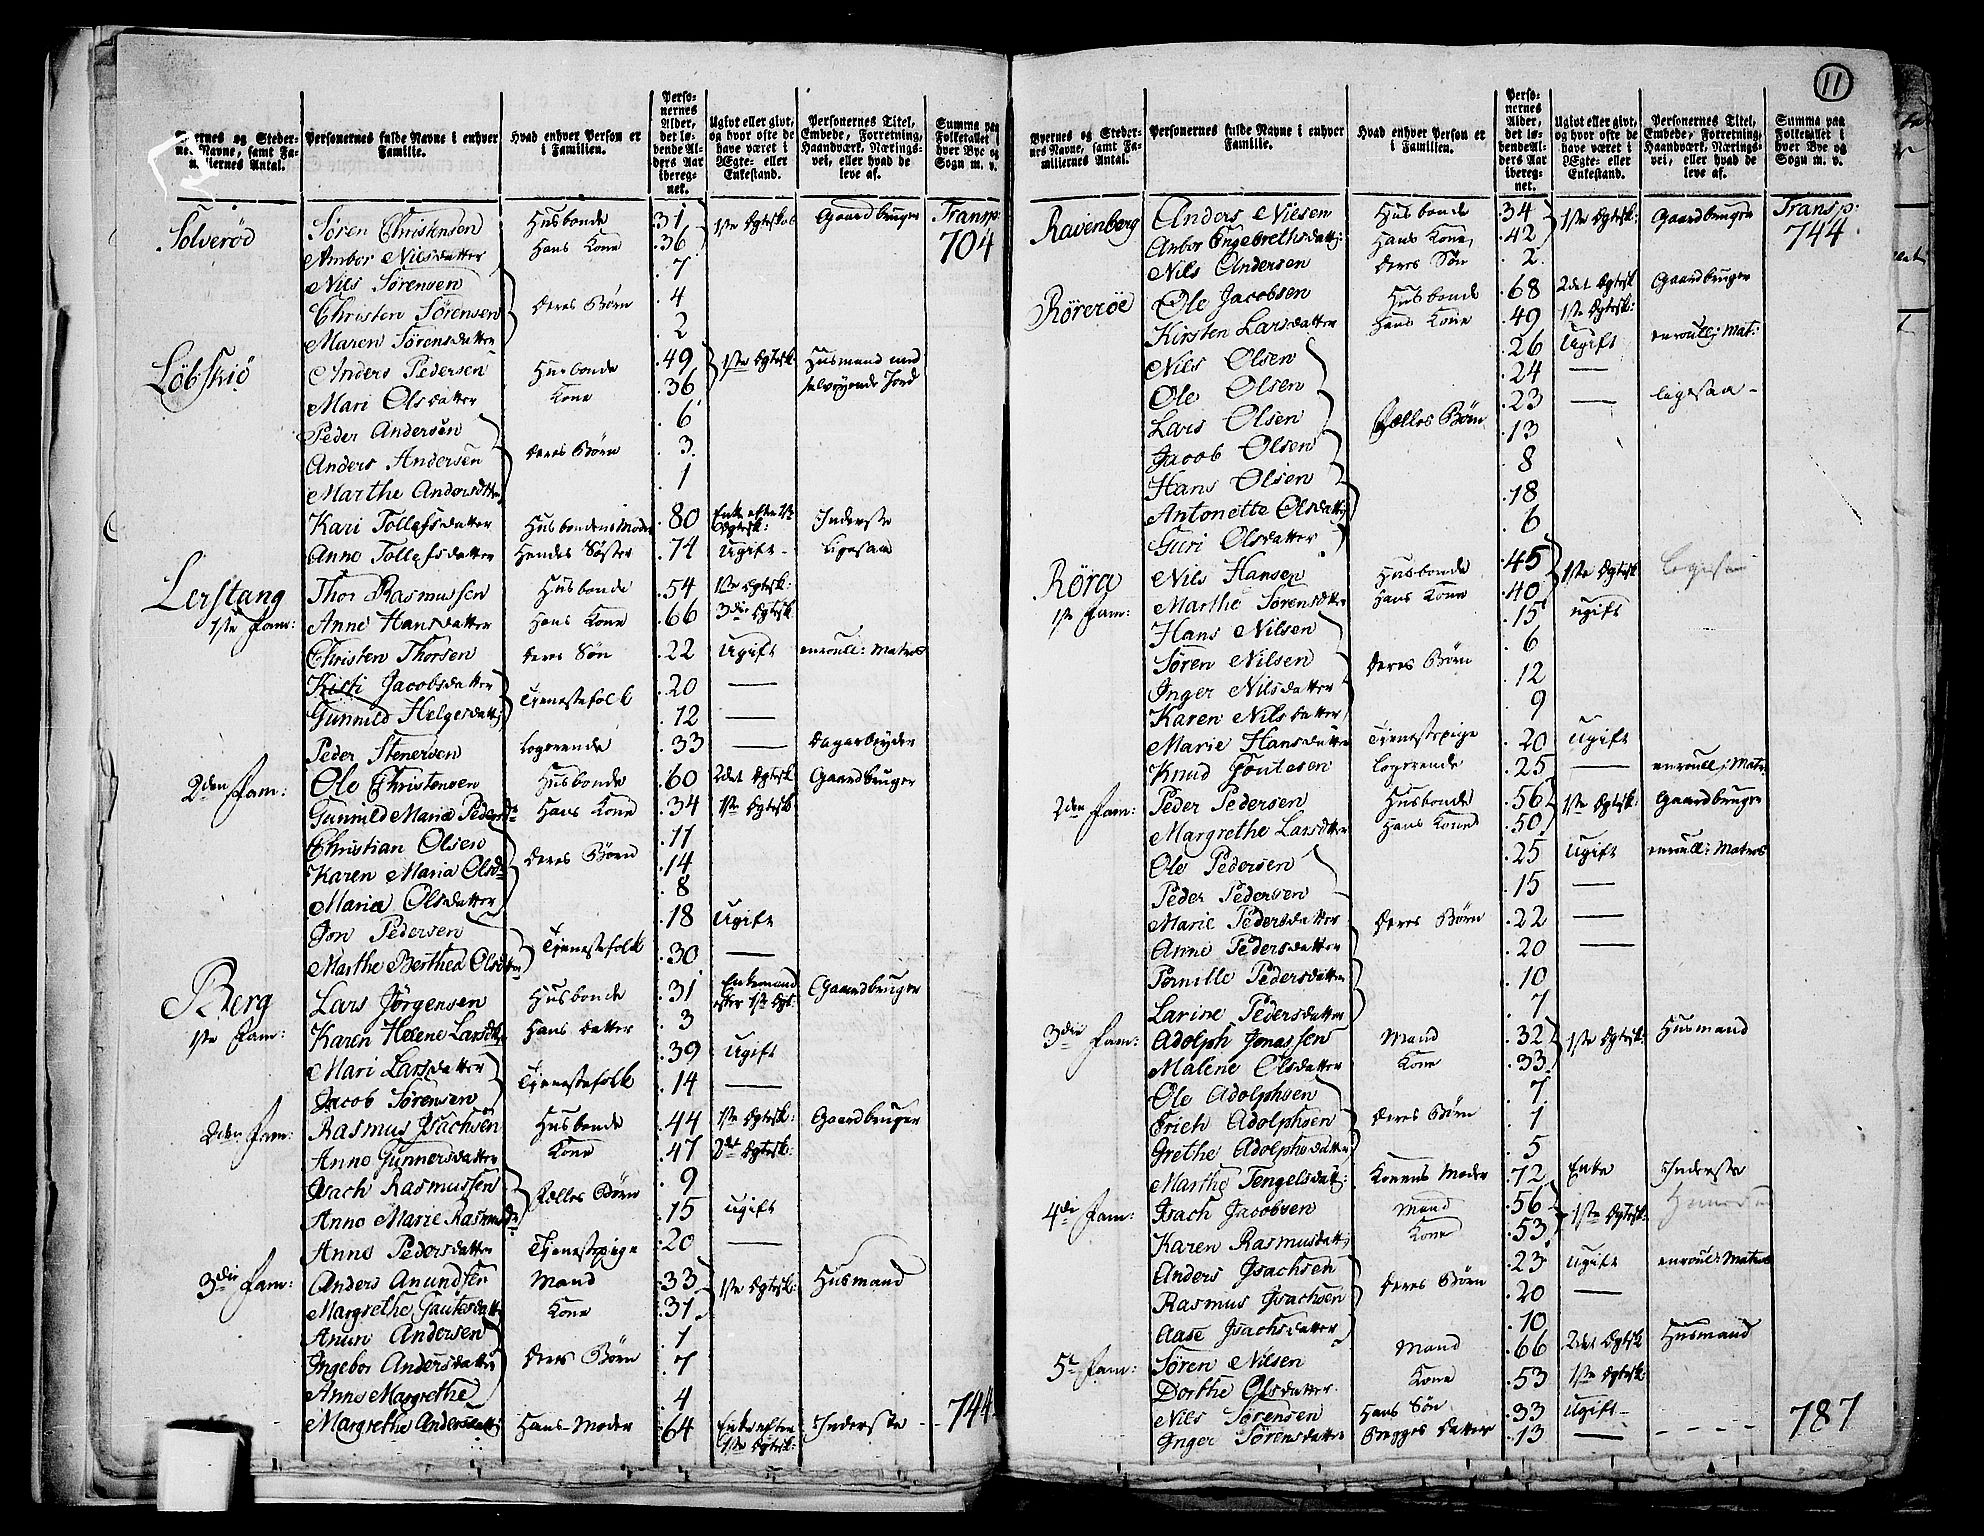 11
Byernes og Stedernes Navne, samt Familiernes Antal. | Personernes fulde Navne i enhver Familie. | Hvad enhver Person er i Familien. | Personernes Alder, det løbende Alders Aar iberegnet. | Ugivt eller givt, og hvor ofte de have været i Ægte- eller Enkestand. | Personernes Titel, Embede, Forretning, Haandværk, Næringsvei, eller hvad de leve af. | Summa paa Folketallet i hver Bye og Sogn m. v.
Solverød Søren Christensen Husbonde 31 1ste Egtesk Gaardbruger Transp: 704
Ambor Nilsdatter Hans Kone 36
Nils Sørensen 7
Christen Sørensen Deres Børn 4
Maren Sørensdatter 2
Løbskiø Anders Pedersen Husbonde 49 1ste Egtesk Husmand med selveyende Jord
Mari Olsdatter Kone 36
Peder Andersen 6
Anders Andersen Deres Børn 3
Marthe Andersdtter 1
Kari Tollefsdatter Husbondens Moder 80 Enke efter Egtesk: Inderste
Anne Tollefsdatter Hendes Søster 74 Ugift Ligesaa
Lerstang
1ste Fam: Thor Rasmussen Husbonde 54 1ste Egtesk:
Anne Hansdatter Hans Kone 66 3die Egtesk
Christen Thorsen Deres Søn 22 Ugift enroull: Matros
Kisti Jacobsdatter Tjenestefolk 20 —
Gunnild Helgesdatt: 12 —
Peder Stenersen Logerende 33 — Dagarbeyder
2den Fam: Ole Christensen Husbonde 60 2det Egtesk Gaardbruger
Gunnild Maria Pedersd Hans Kone 34 1ste Egtesk
Christian Olsen 11
Karen Maria Olsd Deres Børn 14
Maria Olsdatter 8
Jon Pedersen Tjenestefolk 18 Ugift
Marthe Berthea Olsd 30 —
Berg
1ste Fam: Lars Jørgensen Husbonde 31 Enkemand efter 1ste Egt: Gaardbruger
Karen Helene Larsd Hans Datter 3
Mari Larsdatter Tjenestefolk 39 Ugift
Jacob Sørensen 14 —
2den Fam: Rasmus Isachsen Husbonde 44 1ste Egtesk: Gaardbruger
Anne Gunnersdatter Kone 47 2det Egtesk:
Isach Rasmussen Fælles Børn 9
Anne Marie Rasmusd 15 Ugift
Anne Pedersdatter Tjenestepige 20 —
3die Fam: Anders Anundsen Mand 33 1ste Egtesk: Husmand
Margrethe Gautesdatt Kone 31
Anun Andersen 1
Ingebor Andersdatter Deres Børn 7
Anne Margrethe 4
Margrethe Andersdatt: Hans Moder 64 Enke efter 1ste Egtesk: Inderste 744
Byernes og Stedernes Navne, samt Familiernes Antal. | Personernes fulde Navne i enhver Familie. | Hvad enhver Person er i Familien. | Personernes Alder, det løbende Alders Aar iberegnet. | Ugivt eller givt, og hvor ofte de have været i Ægte- eller Enkestand. | Personernes Titel, Embede, Forretning, Haandværk, Næringsvei, eller hvad de leve af. | Summa paa Folketallet i hver Bye og Sogn m. v.
Ravenberg Anders Nilsen Husbonde 34 1ste Egtesk: Gaardbruger Transp: 744
Anbor Engebrethsdatt: Hans Kone 42
Nils Andersen Deres Søn 2
Rörerøe Ole Jacobsen Husbonde 68 2det Egtesk Gaardbruger
Kirsten Larsdatter Hans Kone 49 1ste Egtesk:
Nils Olsen 26 Ugift enroull: Mat:
Ole Olsen 24 —
Lars Olsen Fælles Børn 23 — ligesaa
Jacob Olsen 13
Hans Olsen 8
Antonette Olsdatt 18
Guri Olsdatter 6
Röra
1ste Fam: Nils Hansen Husbonde 45 1ste Egtesk
Marthe Sørensdatter Hans Kone 40
Hans Nilsen 15 Ugift
Søren Nilsen Deres Børn 6
Inger Nilsdatter 12
Karen Nilsdatter 9
Marie Hansdatter Tjenestepige 20 Ugift
Knud Toutesen Logerende 25 — enroull: Matr:
2den Fam: Peder Pedersen Husbonde 56 1ste Egtesk: Gaardbruger
Margrethe Larsdtter Hans Kone 50
Ole Pedersen 25 Ugift enroull: Matros
Peder Pedersen 15 —
Marie Pedersdatter Deres Børn 22 —
Anne Pedersdatter 20 —
Pernille Pedersdatter 10
Larine Pedersdatter 7
3die Fam: Adolph Jonassen Mand 32 1ste Egtesk: Husmand
Malene Olsdatter Kone 33
Ole Adolphsen 7
Erich Adolphsen Deres Børn 1
Grethe Adolphsdatter 5
Marthe Tengelsdatt: Konens Moder 72 Enke Inderste
4de Fam: Isach Jacobsen Mand 56 1ste Egtesk:
Karen Rasmusdatt: Kone 53
Anders Isachsen 23 Ugift enroul: Matros
Rasmus Isachsen Deres Børn 20 —
Aase Isachsdatter 10
5te Fam: Søren Nilsen Mand 66 2det Egtesk Husmand
Dorthe Olsdatter Kone 53 1ste Egtesk:
Nils Sørensen Hans Søn 33 Ugift
Inger Sørensdatter Begges Datter 13 — 787